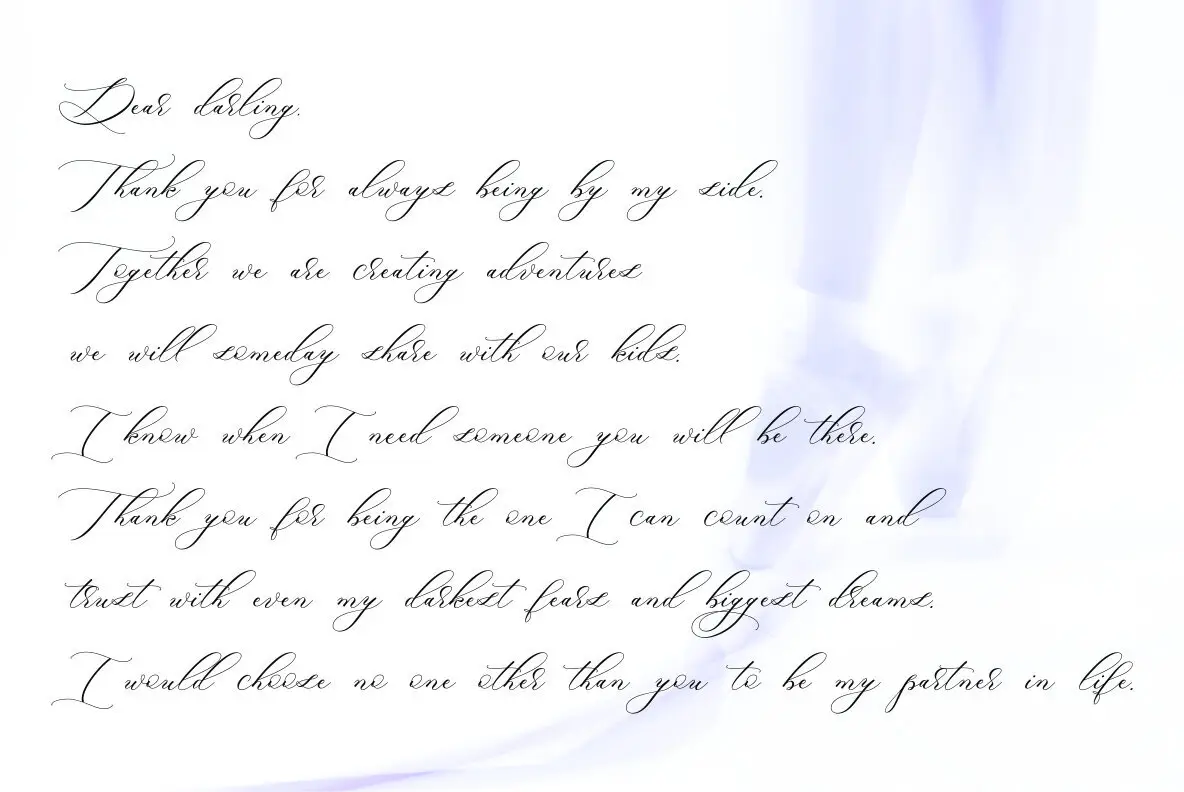 Dear darling.
Thank you for always being by my side.
Together we are creating adventures
we will someday share with our kids.
I know when I need someone you will be there.
Thank you for being the one I can count on and
trust with even my darkest fears and biggest dreams.
I would choose no one other than you to be my partner in life.